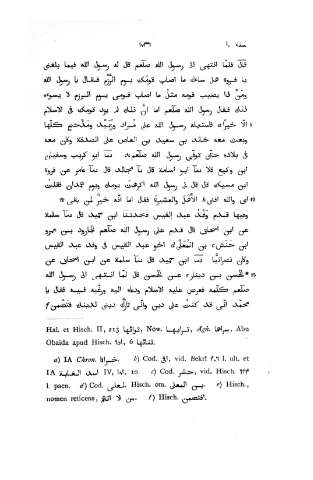 سنة ١٠ ١٧٣٦
قال فلمّا انتهى الى رسول الله صلّعم قال له رسول الله فيما بلغنى
يا فروة هل ساءك ما اصاب قومك يوم الرزم فقال يا رسول الله
ومَنْ ذا يصيب قومه مثل ما اصاب قومى يوم الرزم لا يسوءه
ذلك فقال رسول الله صلّعم اما انّ ذلك لم يزد قومك فى الاسلام
الّا خيرًا فاستعمله رسول الله على مُراد وزُبَيْد ومَذْحِج كلّها
وبعث معه خالد بن سعيد بن العاص على الصدقة وكان معه
فى بلاده حتّى توفّى رسول الله صلّعم ۞ دثنا ابو كريب وسفيان
ابن وكيع قالا دثنا ابو اسامة قال دثنا مجالد قال دثنا عامر عن فروة
ابن مسيك قال قال رسول الله اكرهت يومك ويوم همدان فقلت
اى والله افنى الاهل والعشيرة فقال اما انّه خير لمن بقى ۞
وفيها قدم وَفْد عبد القيس دثنا ابن حميد قال دثنا سلمة
عن ابن اسحاق قال قدم على رسول الله الجارود بن عمرو
ابن حَنَش بن المُعَلَّى اخو عبد القيس فى وفد عبد القيس
وكان نصرانيًّا دثنا ابن حميد قال دثنا سلمة عن ابن اسحاق عن
الحسن بن دينار عن الحسن قال لمّا انتهى الى رسول الله
صلّعم كلّمه فعرض عليه الاسلام ودعاه اليه ورغّبه فيه فقال يا
محمّد انّى قد كنت على دين وانّى تارك دينى لدينك فتضمن f
Hal. et Hisch. II, ٢١٣ Now. Agh. Abu
Obaida apud Hisch. ٩٥١, 6
a) IA Chron. b) Cod. vid. Bekrí ٤٠٦ l. ult. et
IA اسد الغابة IV, 10. c) Cod. vid. Hisch. ٩٤٤
l. paen. d) Cod. Hisch. om. بن المعلى e) Hisch.,
nomen reticens, من لا اتّهم. f) Hisch.